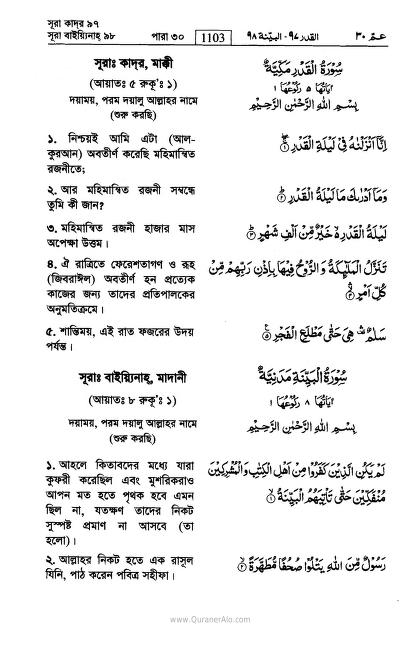 সূরা কাদ্‌র ৯৭
সূরা বাইয়্যিনাহ্ ৯৮ পারা ৩০ 1103 البيّنة ٩٨ - القدر ٩٧ عـمّ ٣٠
সূরাঃ কাদ্‌র, মাক্কী
(আয়াতঃ ৫ রুকূ'ঃ ১)
দয়াময়, পরম দয়ালু আল্লাহর নামে
(শুরু করছি)
১. নিশ্চয়ই আমি এটা (আল-
কুরআন) অবতীর্ণ করেছি মহিমান্বিত
রজনীতে;
২. আর মহিমান্বিত রজনী সম্বন্ধে
তুমি কী জান?
৩. মহিমান্বিত রজনী হাজার মাস
অপেক্ষা উত্তম।
৪. ঐ রাত্রিতে ফেরেশতাগণ ও রূহ
(জিবরাঈল) অবতীর্ণ হন প্রত্যেক
কাজের জন্য তাদের প্রতিপালকের
অনুমতিক্রমে।
৫. শান্তিময়, এই রাত ফজরের উদয়
পর্যন্ত।
সূরাঃ বাইয়্যিনাহ্, মাদানী
(আয়াতঃ ৮ রুকূ'ঃ ১)
দয়াময়, পরম দয়ালু আল্লাহর নামে
(শুরু করছি)
১. আহলে কিতাবদের মধ্যে যারা
কুফরী করেছিল এবং মুশরিকরাও
আপন মত হতে পৃথক হবে এমন
ছিল না, যতক্ষণ তাদের নিকট
সুস্পষ্ট প্রমাণ না আসবে (তা
হলো)।
২. আল্লাহর নিকট হতে এক রাসূল
যিনি, পাঠ করেন পবিত্র সহীফা।
سُوْرَةُ الْقَدْرِ مَكِّيَّةٌ
اٰيَاتُهَا ٥ رُكُوْعُهَا ١
بِسْمِ اللّٰهِ الرَّحْمٰنِ الرَّحِيْمِ
اِنَّاۤ اَنْزَلْنٰهُ فِىْ لَيْلَةِ الْقَدْرِ ۝١
وَمَاۤ اَدْرٰىكَ مَا لَيْلَةُ الْقَدْرِ ۝٢
لَيْلَةُ الْقَدْرِ ۙ خَيْرٌ مِّنْ اَلْفِ شَهْرٍ ۝٣
تَنَزَّلُ الْمَلٰٓئِكَةُ وَالرُّوْحُ فِيْهَا بِاِذْنِ رَبِّهِمْ مِّنْ
كُلِّ اَمْرٍ ۝٤
سَلٰمٌ ۛ هِىَ حَتّٰى مَطْلَعِ الْفَجْرِ ۝٥
سُوْرَةُ الْبَيِّنَةِ مَدَنِيَّةٌ
اٰيَاتُهَا ٨ رُكُوْعُهَا ١
بِسْمِ اللّٰهِ الرَّحْمٰنِ الرَّحِيْمِ
لَمْ يَكُنِ الَّذِيْنَ كَفَرُوْا مِنْ اَهْلِ الْكِتٰبِ وَالْمُشْرِكِيْنَ
مُنْفَكِّيْنَ حَتّٰى تَاْتِيَهُمُ الْبَيِّنَةُ ۝١
رَسُوْلٌ مِّنَ اللّٰهِ يَتْلُوْا صُحُفًا مُّطَهَّرَةً ۝٢
www.QuranerAlo.com